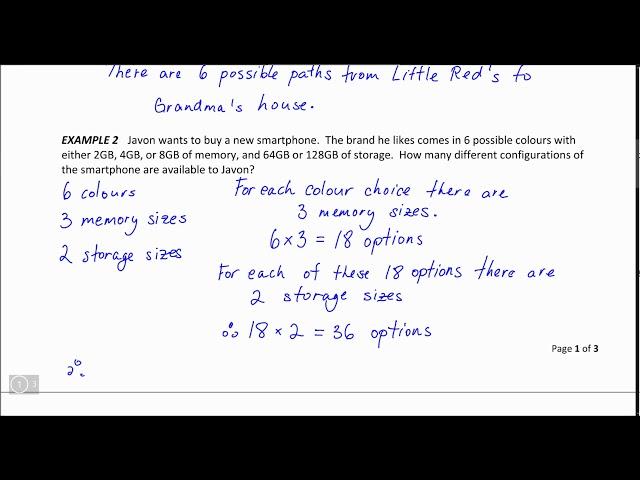 There are 6 possible paths from Little Red's to
Grandma's house.
EXAMPLE 2 Javon wants to buy a new smartphone. The brand he likes comes in 6 possible colours with
either 2GB, 4GB, or 8GB of memory, and 64GB or 128GB of storage. How many different configurations of
the smartphone are available to Javon?
6 colours
3 memory sizes
2 storage sizes
For each colour choice there are
3 memory sizes.
6 × 3 = 18 options
For each of these 18 options there are
2 storage sizes
∴ 18 × 2 = 36 options
Page 1 of 3
1 3